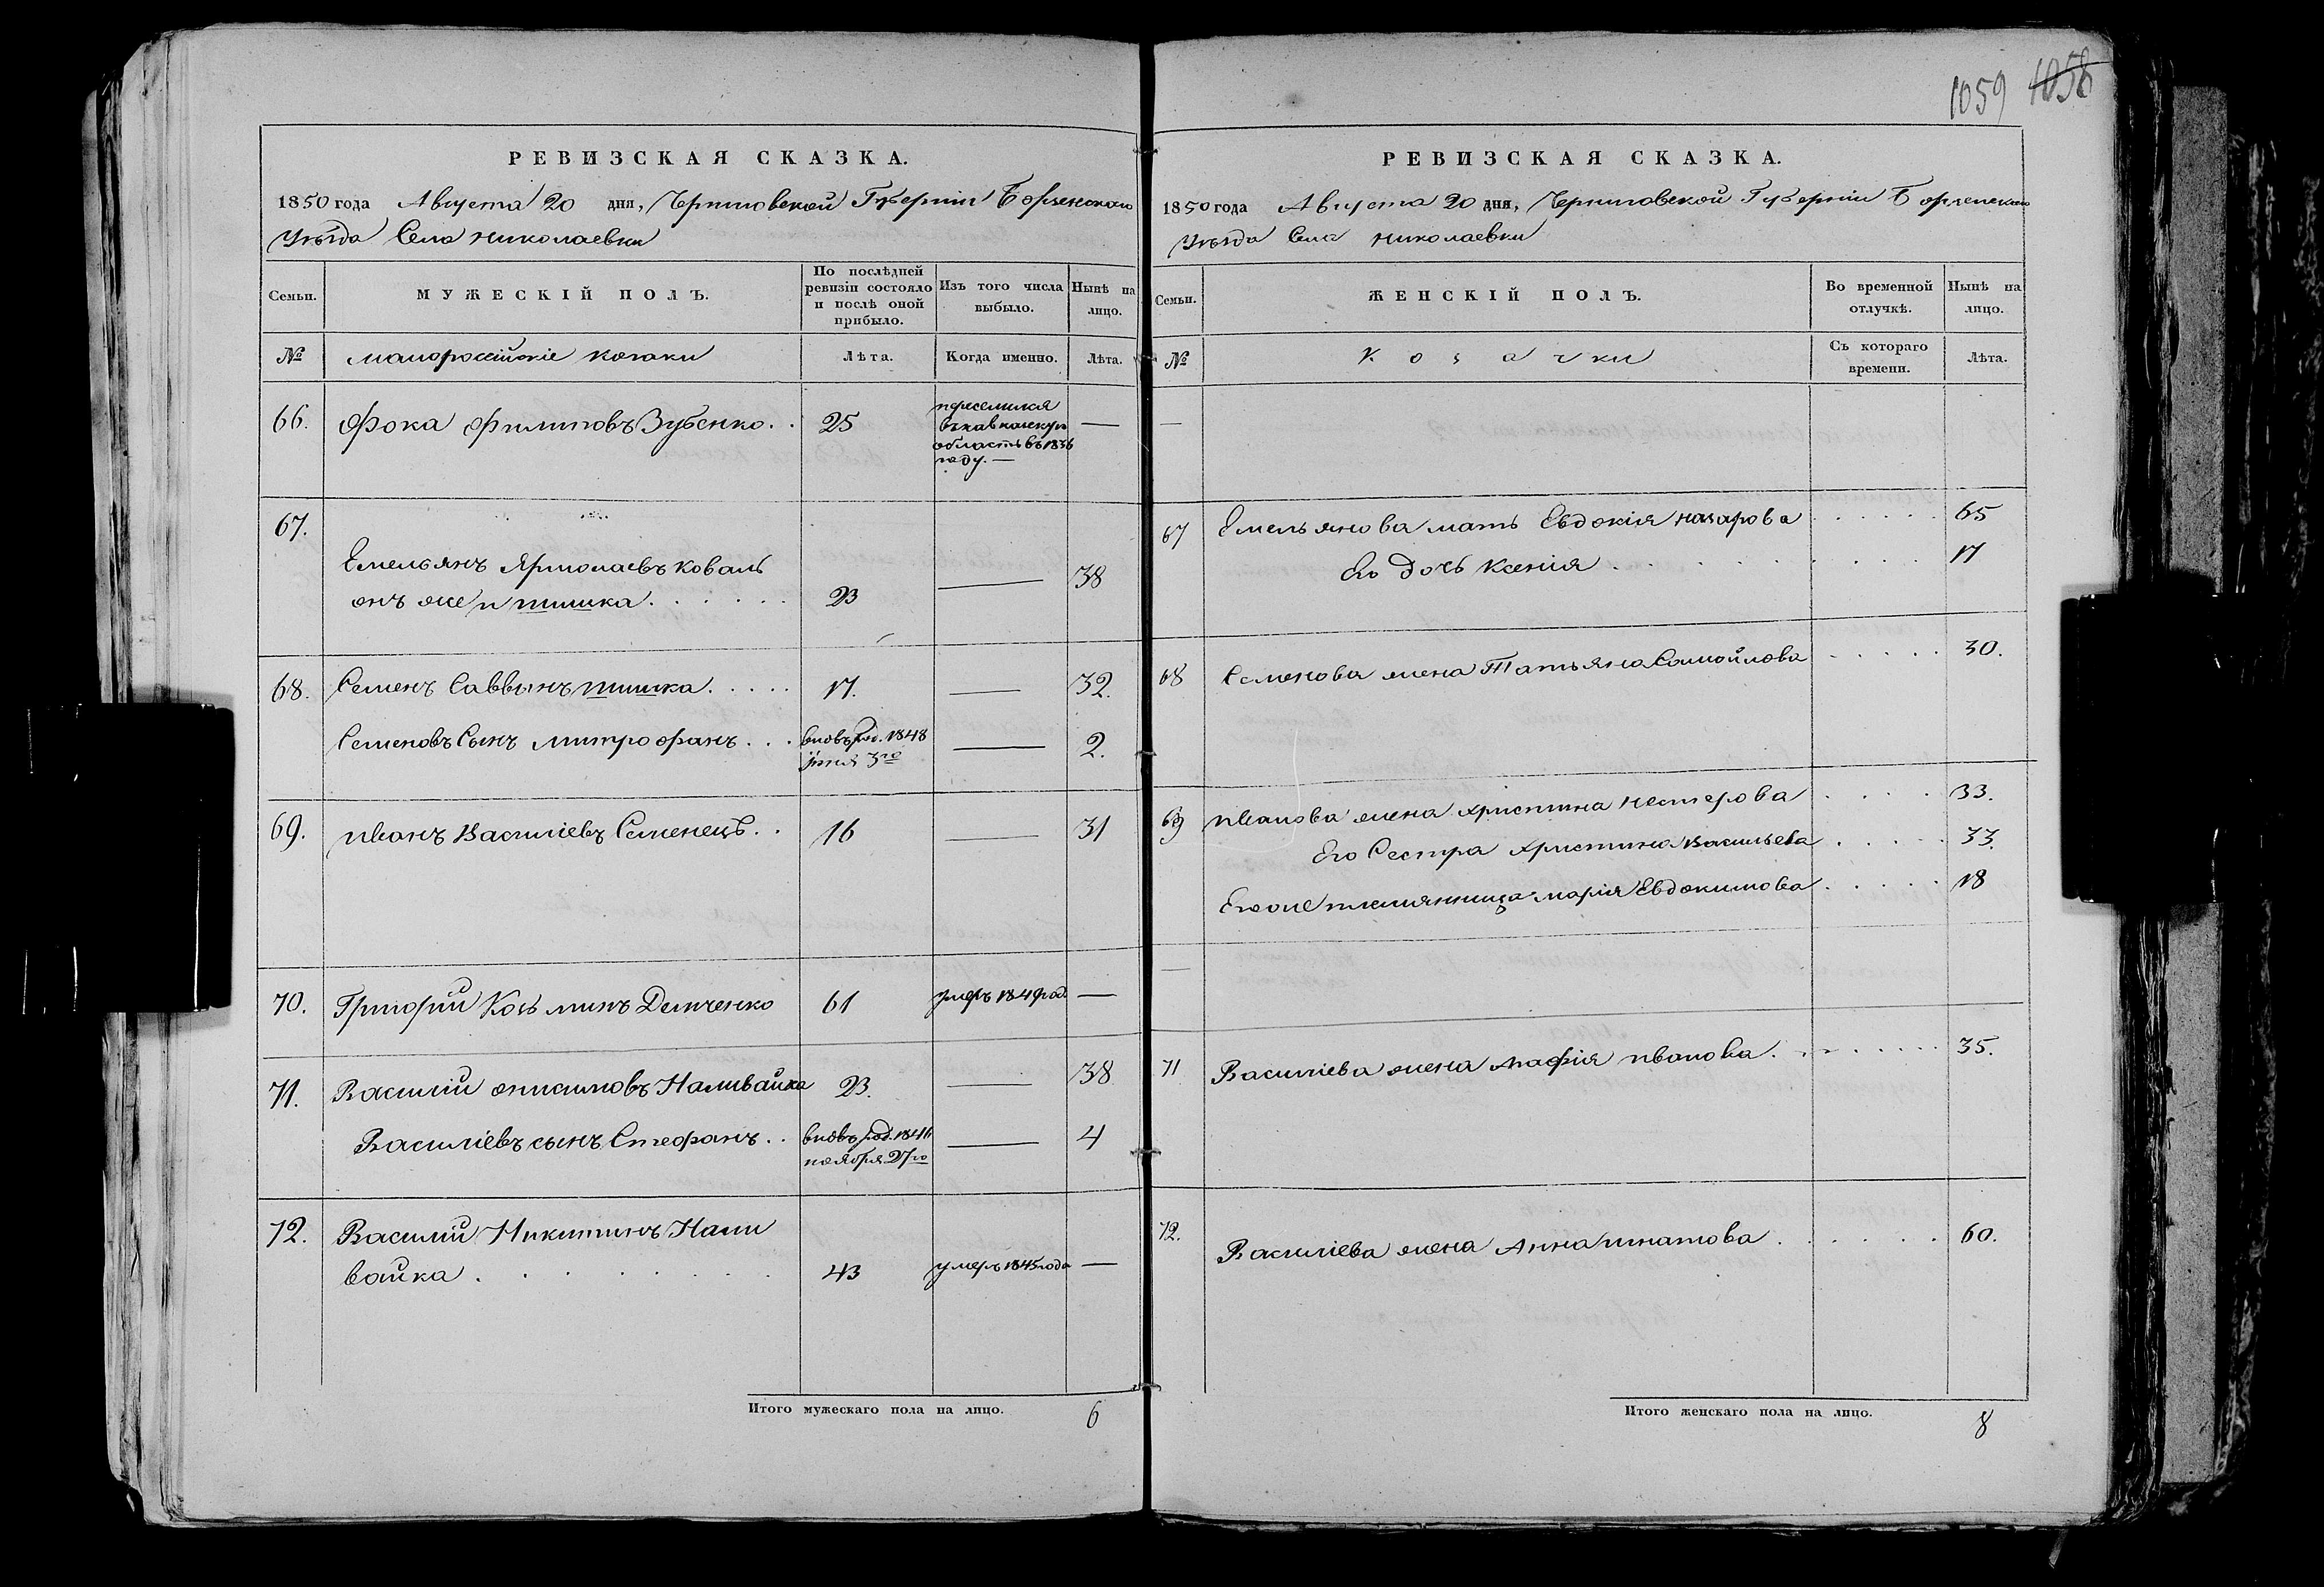 1059 1058
РЕВИЗСКАЯ СКАЗКА.
1850 года Августа 20 дня, Черниговской Губерніи Борзенскаго
Уѣзда Села Николаевки
Семьи.
МУЖЕСКІЙ ПОЛЪ.
По послѣдней
ревизіи состояло
и послѣ оной
прибыло.
Изъ того числа
выбыло.
Нынѣ на
лицо.
№ малороссійскіе козаки Лѣта. Когда именно. Лѣта.
66. Фока Филиповъ Зубенко. . 25 —
переселился
въ кавказскую
область въ 1836
году. —
67.
Емельянъ Ярмолаевъ Коваль
онъ же и шишка . . . . . . 23 — 38
68. Семенъ Саввинъ шишка . . . . 17. — 32.
Семеновъ Сынъ Митрофанъ . . . вновь род. 1848 — 2.
69. Иванъ Василіевъ Семенецъ. . 16 — 31
70. Григорій Козьминъ Демченко 61 умеръ 1849 год. —
71. Василій Онисимовъ Наливайка 23. — 38
Василіевъ сынъ Стефанъ . . вновь род. 1846 — 4
ноября 27го
72. Василій Никитинъ Нали
вайка . . . . . . . 43 умеръ 1845 года —
Итого мужескаго пола на лицо. 6
РЕВИЗСКАЯ СКАЗКА.
1850 года Августа 20 дня, Черниговской Губерніи Борзенскаго
Уѣзда Села Николаевки
Семьи.
ЖЕНСКІЙ ПОЛЪ.
Во временной
отлучкѣ.
Нынѣ на
лицо.
№ Козачки
Съ котораго
времени.
Лѣта.
—
67 Емельянова мать Евдокія Назарова . . . . . . 65
Его дочь Ксенія . . . . . . . . . 17
68 Семенова жена Татьяна Самойлова . . . . . 30.
69 Иванова жена Христина Нестерова . . . . 33.
Его Сестра Христина Васильева . . . . . 33.
Его же племянница Марія Евдокимова . . . . . 18
—
71 Василіева жена Мафія Иванова . . . . . . . 35.
72. Василіева жена Анна Игнатова . . . . . . 60.
Итого женскаго пола на лицо. 8